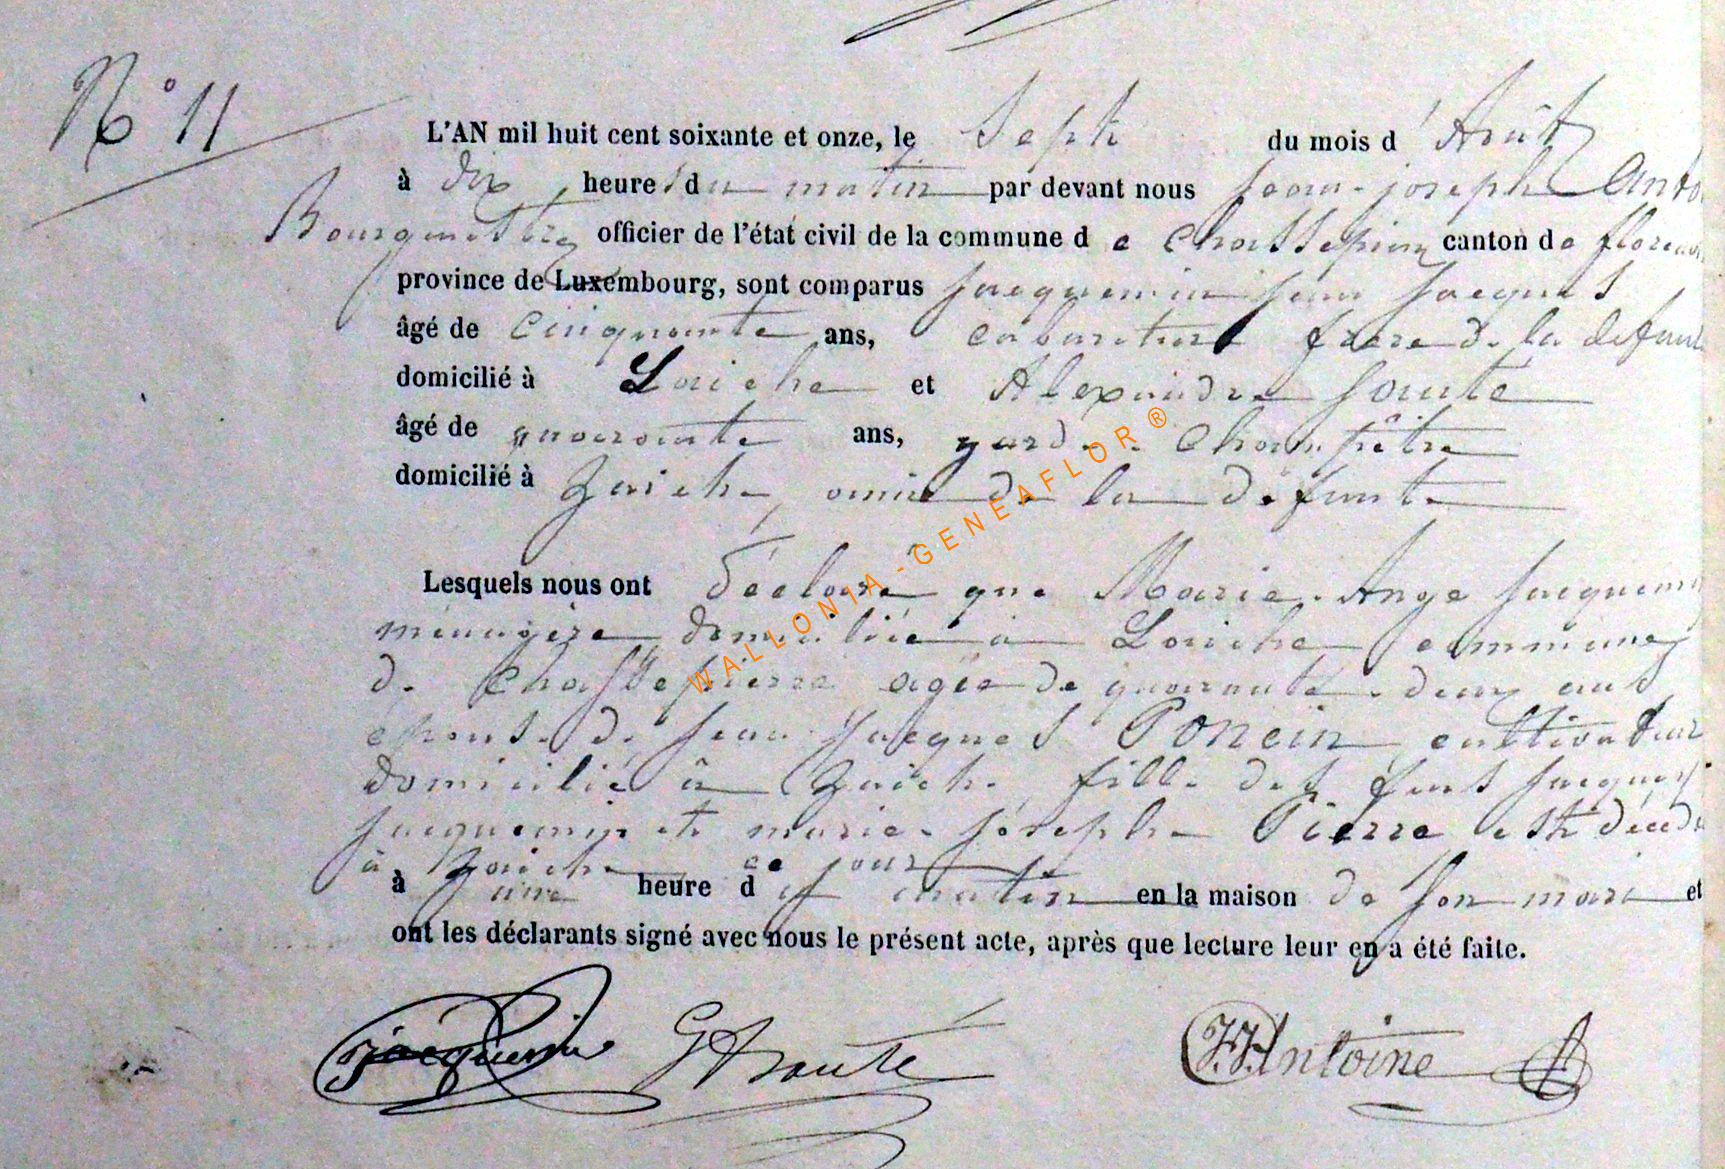 N° 11
L'AN mil huit cent soixante et onze, le Sept du mois d'Août
à dix heures du matin par devant nous Jean-joseph Anto
Bourgmestre officier de l'état civil de la commune de Chassepierre canton de floren
province de Luxembourg, sont comparus Jacquemin Jean Jacques
âgé de Cinquante ans, cabaretier frère de la défunte
domicilié à Laiche et Alexandre Santé
âgé de quarante ans, garde Champêtre
domicilié à Laiche, ami de la défunte
Lesquels nous ont déclaré que Marie-Ange Jacquemin
ménagère domiciliée à Laiche commune
de Chassepierre agée de quarante-deux ans
épouse de Jean Jacques Poncin cultivateur
domicilié à Laiche fille des feus Jacques
Jacquemin et marie-Joseph Pierre est décédée
à Laiche ce jour
à une heure du matin en la maison de son mari et
ont les déclarants signé avec nous le présent acte, après que lecture leur en a été faite.
Jacquemin J.J. Antoine
WALLONIA-GENEAFLOR®